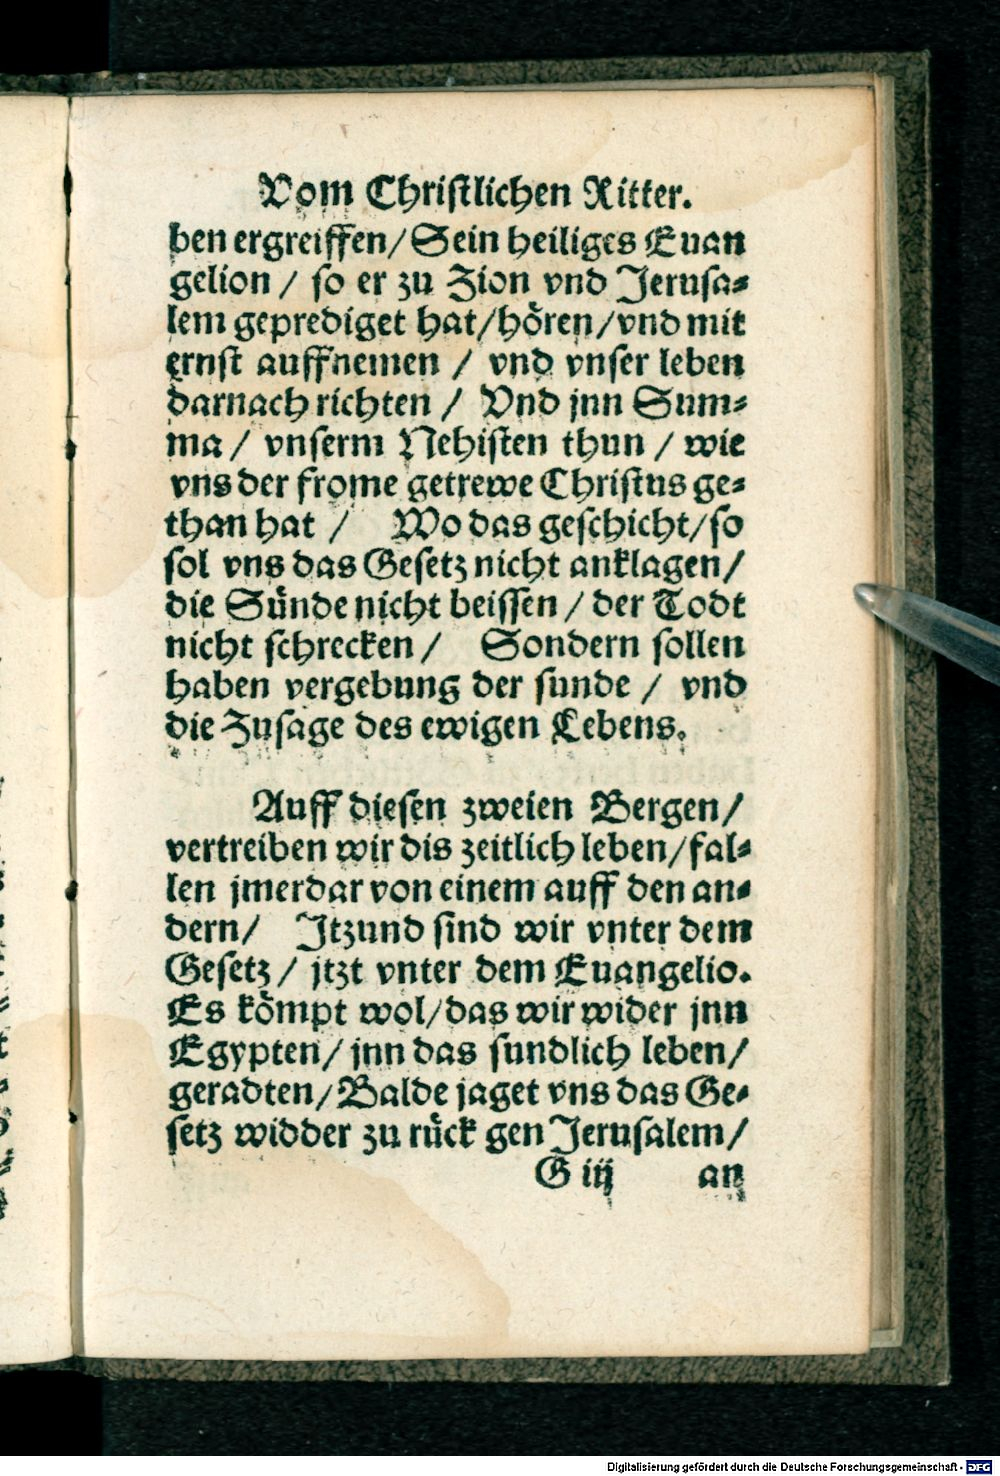 Vom Christlichen Ritter.
ben ergreiffen/Sein heiliges Euan
gelion / so er zu Zion vnd Jerusa⸗
lem geprediget hat/hören/vnd mit
ernst auffnemen / vnd vnser leben
darnach richten / Vnd jnn Sum⸗
ma / vnserm Nehisten thun / wie
vns der frome getrewe Christus ge⸗
than hat / Wo das geschicht/so
sol vns das Gesetz nicht anklagen/
die Sünde nicht beissen / der Todt
nicht schrecken / Sondern sollen
haben vergebung der sunde / vnd
die Zusage des ewigen Lebens.
Auff diesen zweien Bergen/
vertreiben wir dis zeitlich leben/fal⸗
len jmerdar von einem auff den an⸗
dern/ Jtzund sind wir vnter dem
Gesetz / jtzt vnter dem Euangelio.
Es kömpt wol/das wir wider jnn
Egypten/jnn das sundlich leben/
geradten/Balde jaget vns das Ge⸗
setz widder zu rück gen Jerusalem/
G iij an
Digitalisierung gefördert durch die Deutsche Forschungsgemeinschaft - DFG